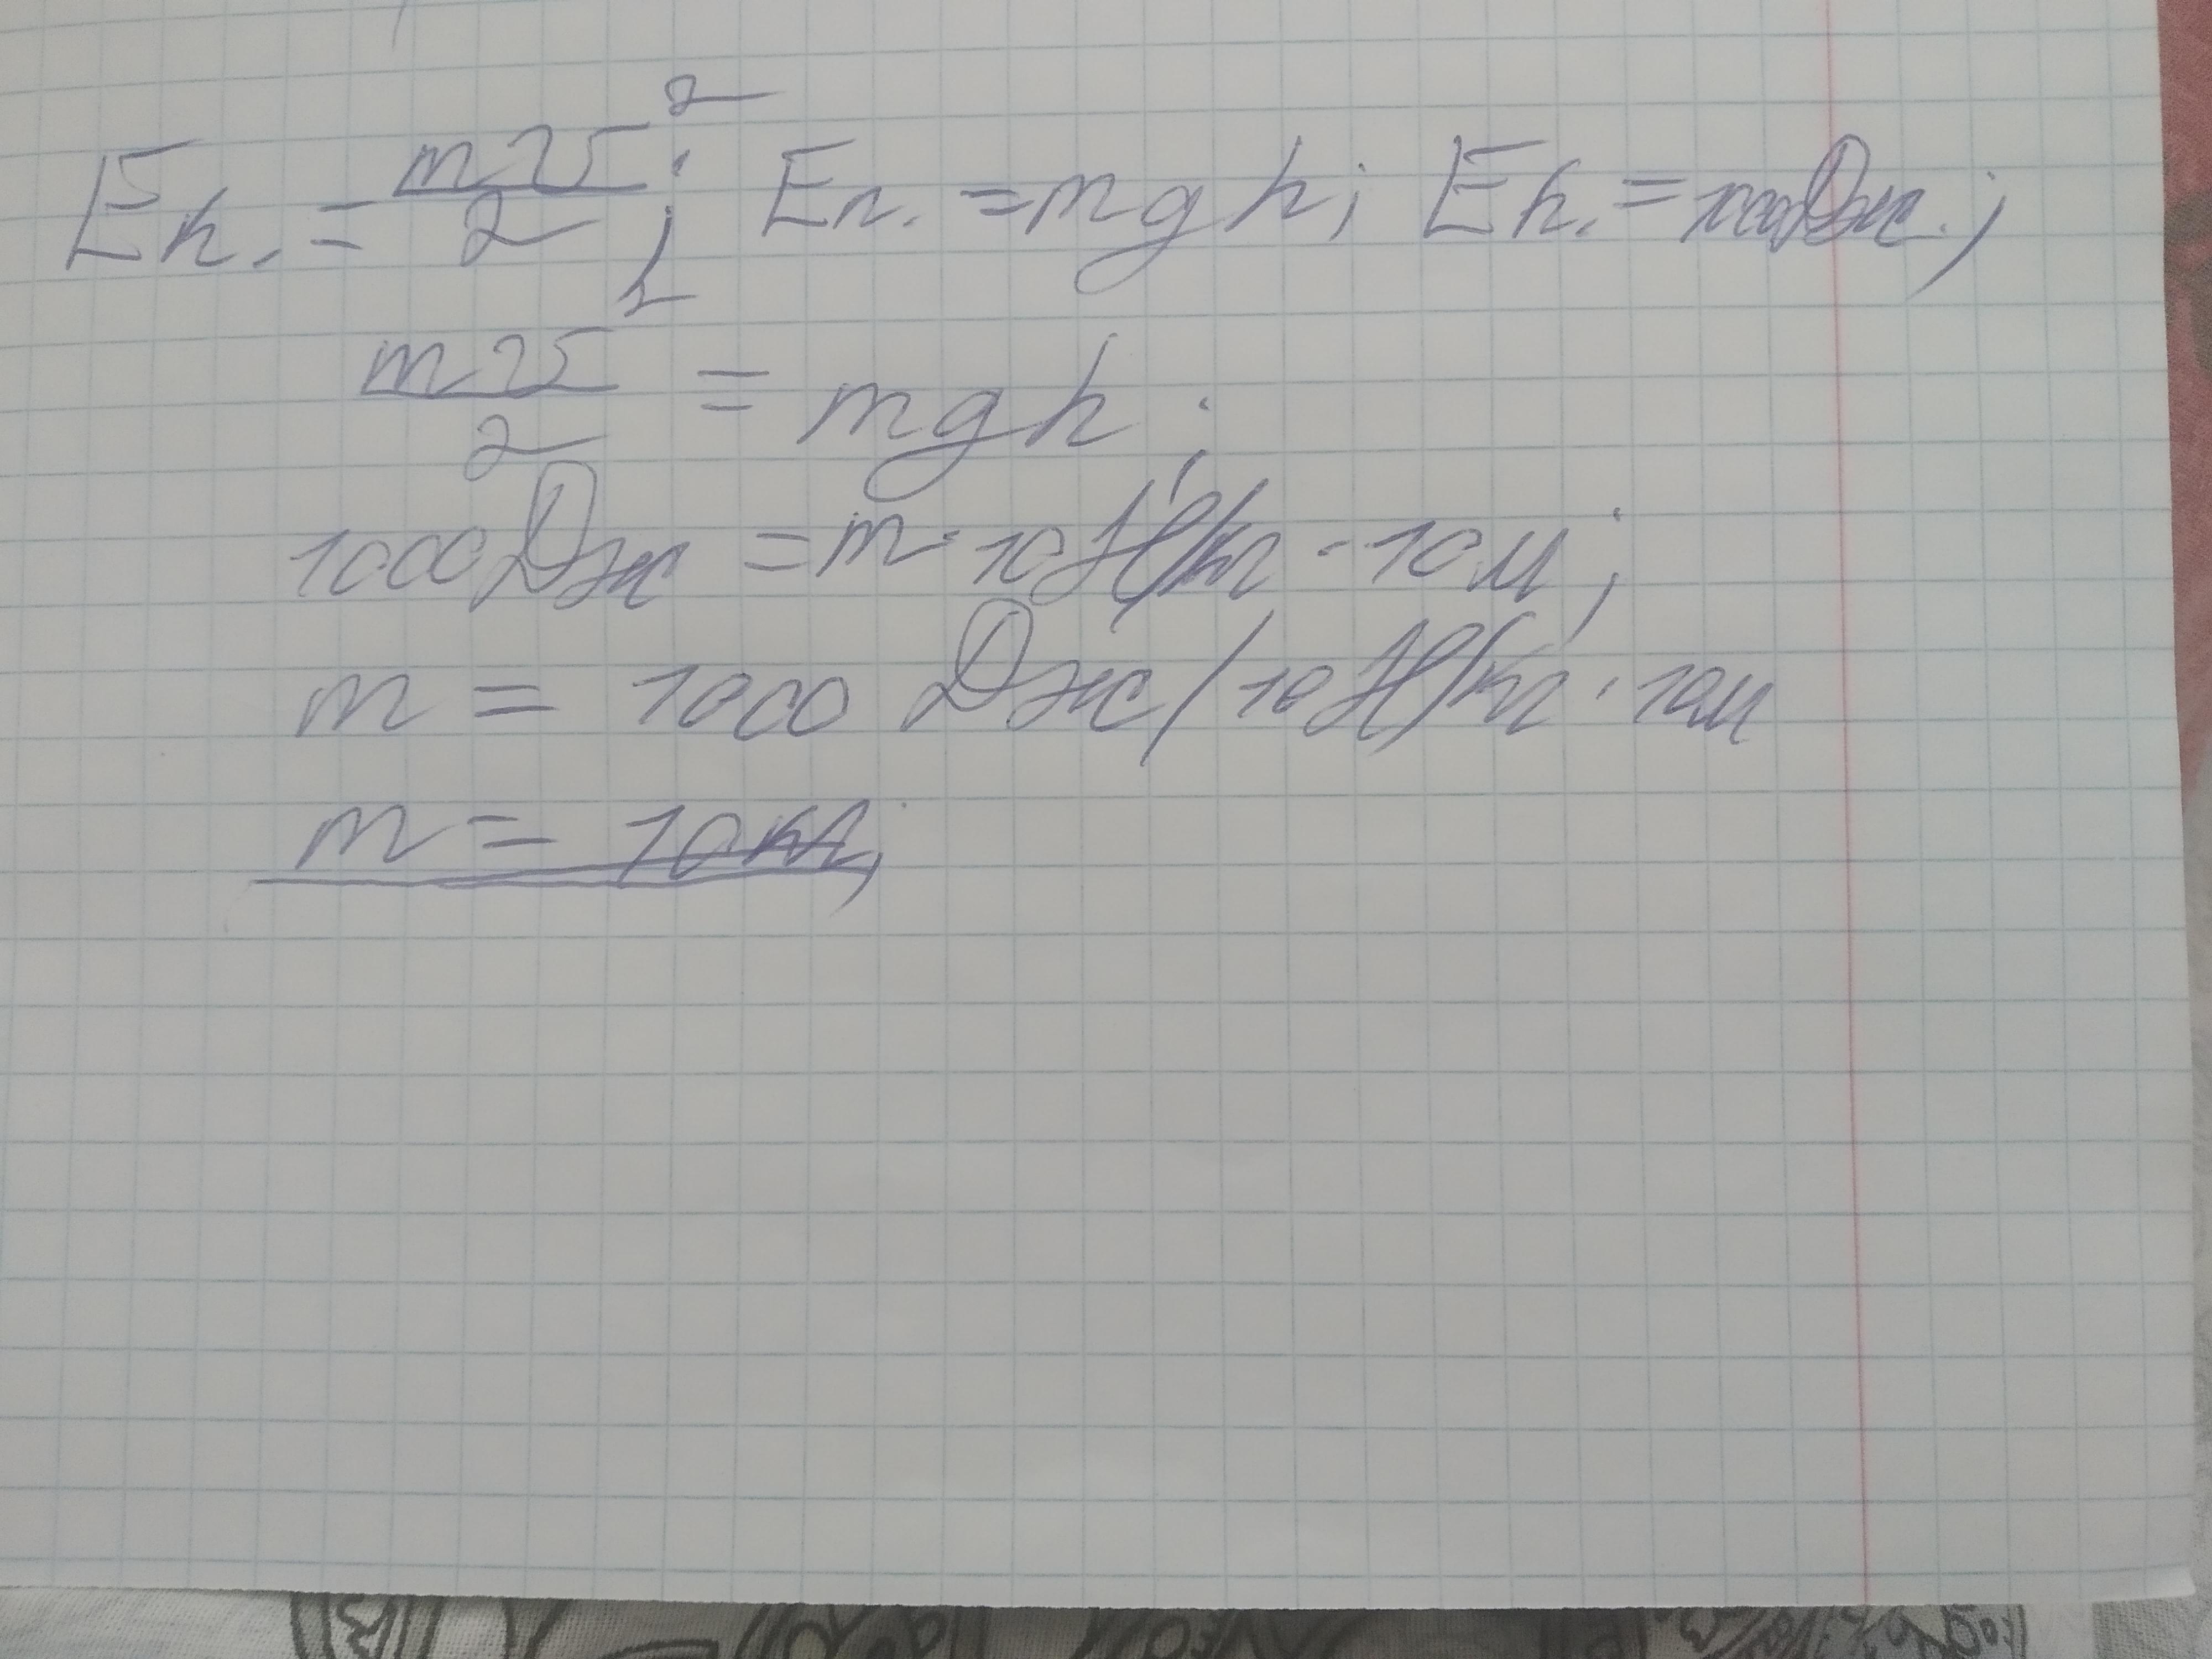 Eк. = mV²/2; Eп. = mgh; Eк. = 1000Дж.;
mV²/2 = mgh;
1000Дж = m · 10Н/кг · 10м;
m = 1000 Дж/10Н/кг · 10м
m = 10кг;